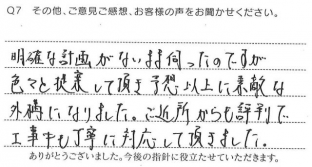 Q7 その他、ご意見ご感想、お客様の声をお聞かせください。
明確な計画がないまま伺ったのですが
色々と提案して頂き予想以上に素敵な
外構になりました。ご近所からも評判で
工事中も丁寧に対応して頂きました。
ありがとうございました。今後の指針に役立たせていただきます。